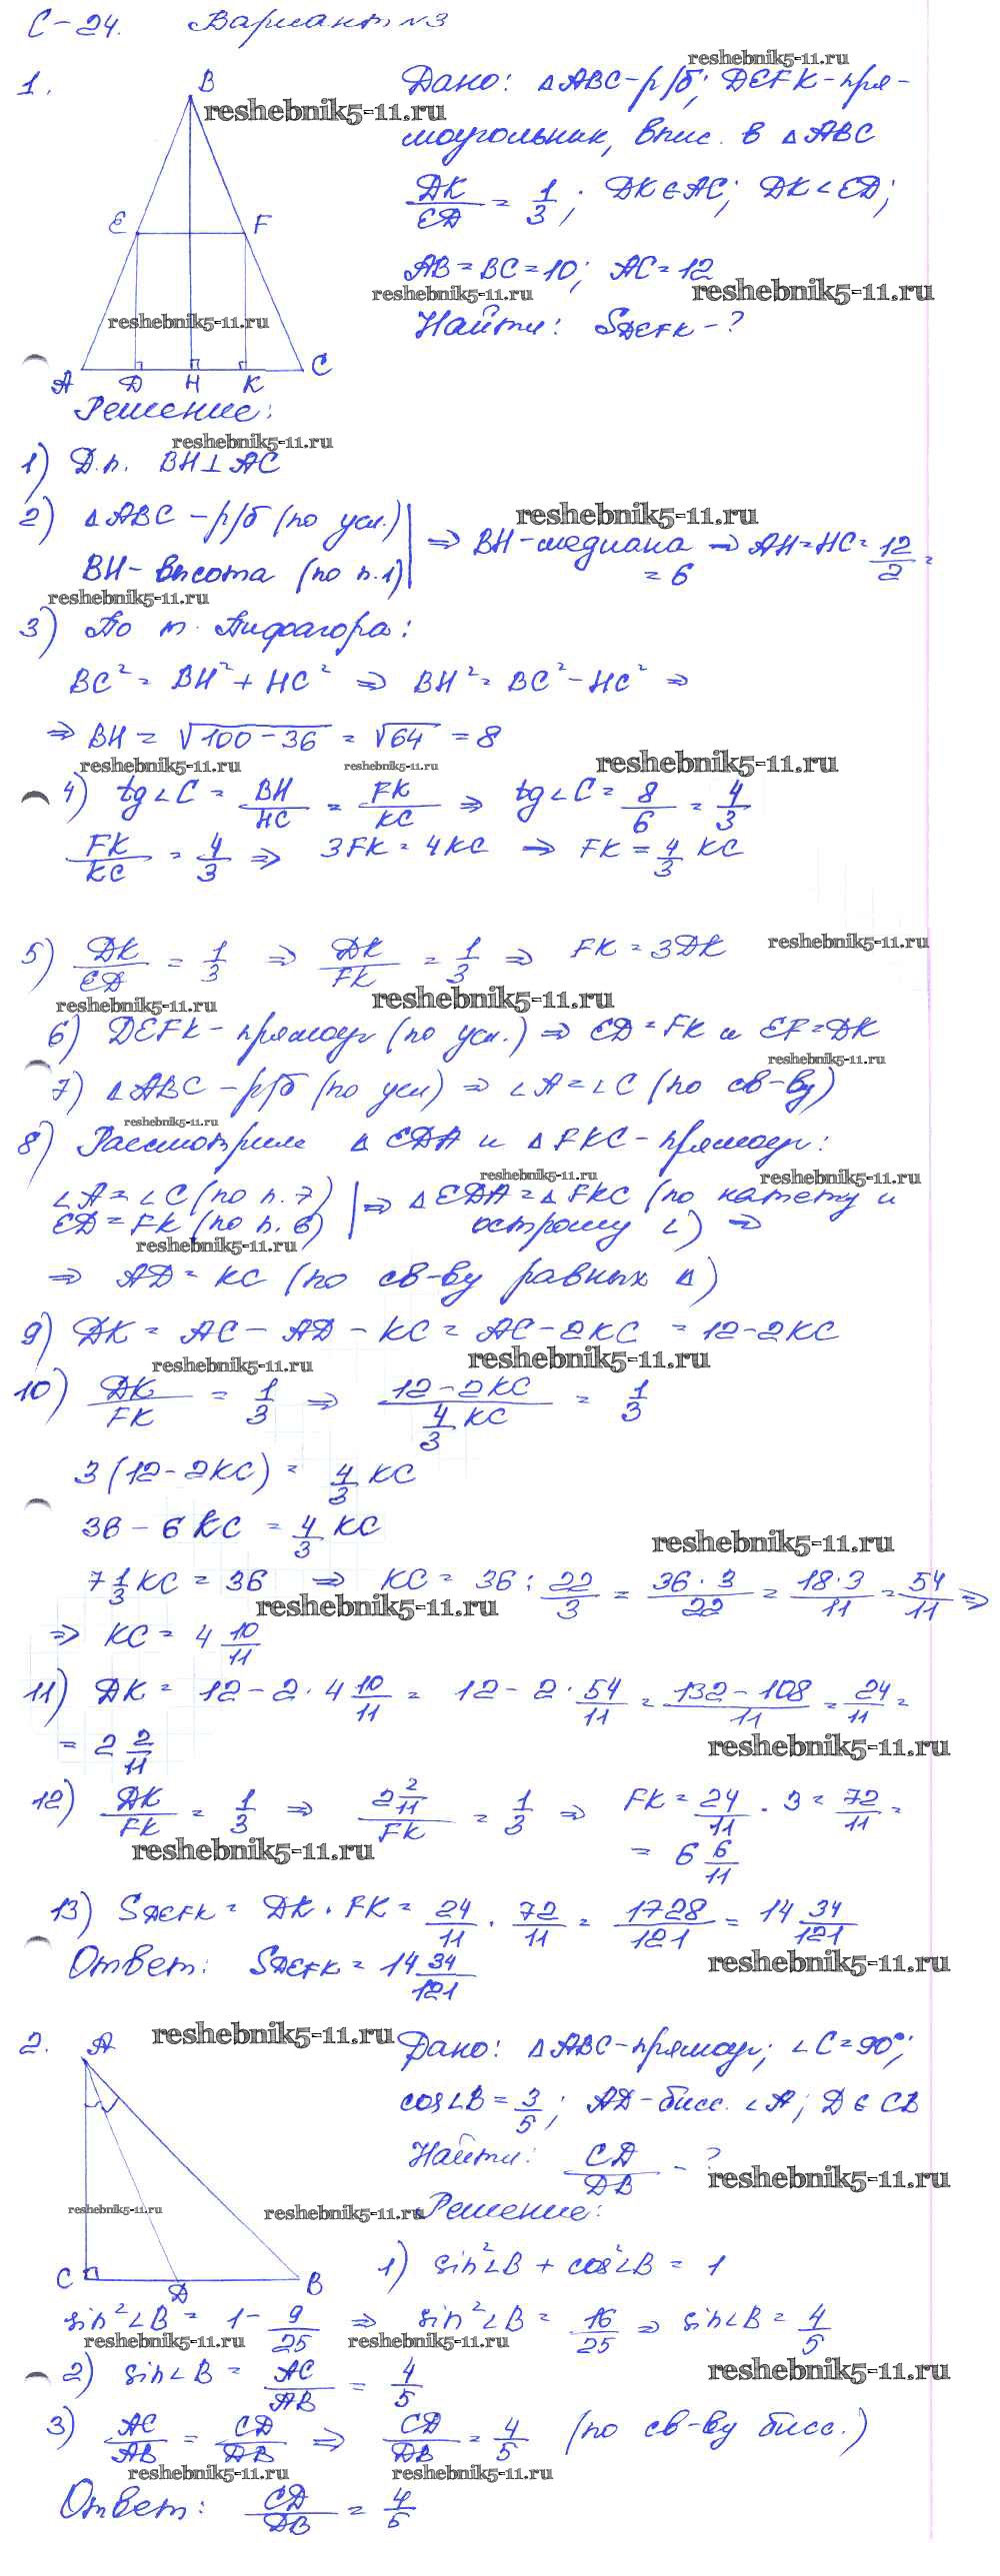 С-24. Вариант №3
1.
B
E F
A D H K C
Дано: △ABC-р/б; DEFK-пря-
моугольник, впис. в △ABC
DK/ED = 1/3; DK∈AC; DK<ED;
AB=BC=10; AC=12
Найти: SDEFK-?
Решение:
1) Д.п. BH⊥AC
2) △ABC-р/б (по усл.) | ⇒ BH-медиана ⇒ AH=HC=12/2=
BH-высота (по п.1) | =6
3) По т. Пифагора:
BC²=BH²+HC² ⇒ BH²=BC²-HC² ⇒
⇒ BH=√100-36=√64=8
4) tg∠C=BH/HC=FK/KC ⇒ tg∠C=8/6=4/3
FK/KC=4/3 ⇒ 3FK=4KC ⇒ FK=4/3 KC
5) DK/ED=1/3 ⇒ DK/FK=1/3 ⇒ FK=3DK
6) DEFK-прямоуг (по усл.) ⇒ ED=FK и EF=DK
7) △ABC-р/б (по усл) ⇒ ∠A=∠C (по св-ву)
8) Рассмотрим △EDA и △FKC-прямоуг:
∠A=∠C (по п.7) | ⇒ △EDA=△FKC (по катету и
ED=FK (по п.6) | острому ∠) ⇒
⇒ AD=KC (по св-ву равных △)
9) DK=AC-AD-KC=AC-2KC=12-2KC
10) DK/FK=1/3 ⇒ 12-2KC/4/3 KC=1/3
3(12-2KC)=4/3 KC
36-6KC=4/3 KC
7 1/3 KC=36 ⇒ KC=36:22/3=36·3/22=18·3/11=54/11 ⇒
⇒ KC=4 10/11
11) DK=12-2·4 10/11=12-2·54/11=132-108/11=24/11=
=2 2/11
12) DK/FK=1/3 ⇒ 2 2/11/FK=1/3 ⇒ FK=24/11·3=72/11=
=6 6/11
13) SDEFK=DK·FK=24/11·72/11=1728/121=14 34/121
Ответ: SDEFK=14 34/121
2.
A
C D B
Дано: △ABC-прямоуг; ∠C=90°;
cos∠B=3/5; AD-бисс. ∠A; D∈CB
Найти: CD/DB-?
Решение:
1) sin²∠B+cos²∠B=1
sin²∠B=1-9/25 ⇒ sin²∠B=16/25 ⇒ sin∠B=4/5
2) sin∠B=AC/AB=4/5
3) AC/AB=CD/DB ⇒ CD/DB=4/5 (по св-ву бисс.)
Ответ: CD/DB=4/5
reshebnik5-11.ru